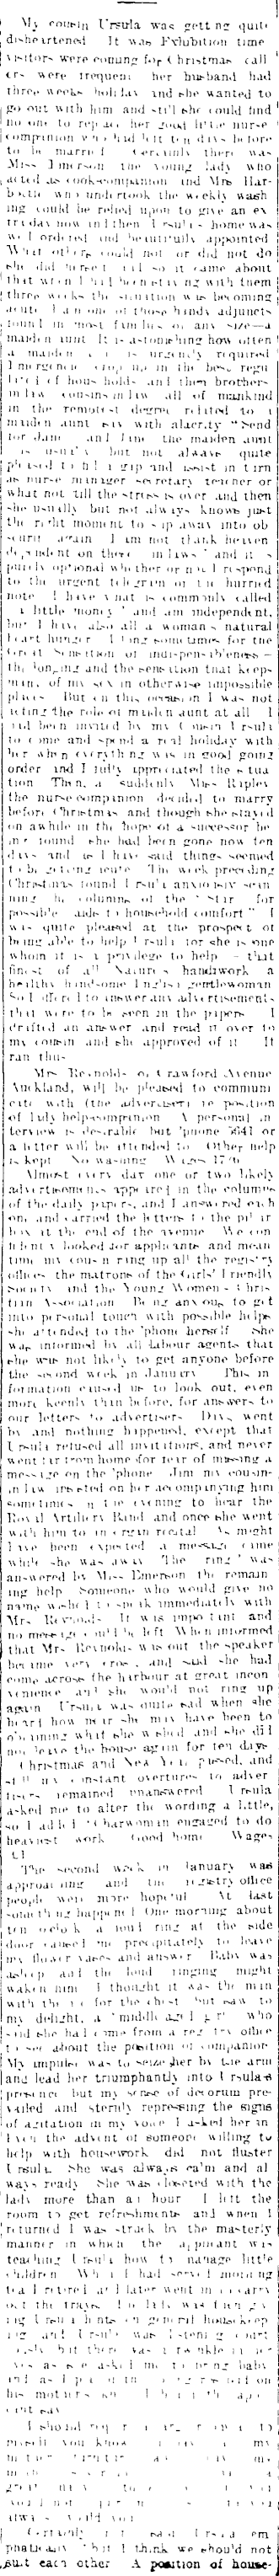 My cousin Ursula was getting quite
disheartened It was Exhibition time
visitors were coming for Christmas call
ers were frequent her husband had
three weeks holiday and she wanted to
go out with him and still she could find
no one to replace her good little nurse
companion who had left ten days before
to be married Certainly there was
Miss Emerson the young lady who
acted as cook-companion and Mrs Har-
bottle who undertook the weekly wash
ing could be relied upon to give an ex
tra day now and then Ursula's home was
well ordered and beautifully appointed
What others could not or did not do
she did herself and so it came about
that when I had been staying with them
three weeks the situation was becoming
acute I am one of those handy adjuncts
found in most families of any size—a
maiden aunt It is astonishing how often
a maiden aunt is urgently required
Emergencies crop up in the best regu
lated of households and then brothers-
in-law cousins in law all of mankind
in the remotest degree related to a
maiden aunt say with alacrity "Send
for Jane" and Jane the maiden aunt
is usually but not always quite
pleased to fill a gap and assist in turn
as nurse manager secretary teacher or
what not till the stress is over and then
she usually but not always knows just
the right moment to slip away into ob
scurity again I am not thank heaven
dependent on these "in laws" and it is
purely optional whether or not I respond
to the urgent telegram or the hurried
note I have what is commonly called
"a little money" and am independent,
but I have also all a woman's natural
heart hunger I long sometimes for the
Great Sensation of indispensibleness—
the longing and the sensation that keeps
many of my sex in otherwise impossible
places But on this occasion I was not
acting the role of maiden aunt at all I
had been invited by my Cousin Ursula
to come and spend a real holiday with
her when everything was in good going
order and I fully appreciated the situa
tion Then, a suddenly Miss Ripley
the nurse companion decided to marry
before Christmas and though she stayed
on awhile in the hope of a successor be
ing found she had been gone now ten
days and as I have said things seemed
to be getting acute The week preceding
Christmas found Ursula anxiously scan
ning the columns of the "Star" for
possible "aids to household comfort" I
was quite pleased at the prospect of
being able to help Ursula for she is one
whom it is a privilege to help—that
finest of all Nature's handiwork a
healthy handsome English gentlewoman
So I offered to answer any advertisements
that were to be seen in the papers I
drafted an answer and read it over to
my cousin and she approved of it It
ran thus—
Mrs Reynolds of Crawford Avenue
Auckland, will be pleased to communi
cate with (the advertiser) re position
of lady help-companion A personal in
terview is desirable but 'phone 5641 or
a letter will be attended to Other help
is kept No washing Wages 17/6
Almost every day one or two likely
advertisements appeared in the columns
of the daily papers, and I answered each
one and carried the letters to the pillar
box at the end of the avenue We con
fidently looked for applicants and mean
time my cousin rang up all the registry
offices the matrons of the Girls' Friendly
Society and the Young Women's Chris
tian Association Being anxious to get
into personal touch with possible helps
she attended to the 'phone herself She
was informed by all labour agents that
she was not likely to get anyone before
the second week in January This in
formation caused us to look out, even
more keenly than before, for answers to
our letters to advertisers Days went
by and nothing happened, except that
Ursula refused all invitations, and never
went far from home for fear of missing a
message on the 'phone Jim my cousin-
in law insisted on her accompanying him
sometimes in the evening to hear the
Royal Artillery Band and once she went
with him to an organ recital As might
have been expected a message came
while she was away The "ring" was
answered by Miss Emerson the remain
ing help Someone who would give no
name wished to speak immediately with
Mrs Reynolds It was important and
no message could be left When informed
that Mrs Reynolds was out the speaker
became very cross, and said she had
come across the harbour at great incon
venience and she would not ring up
again Ursula was quite sad when she
heard how near she may have been to
obtaining what she wished and she did
not leave the house again for ten days
Christmas and New Year passed, and
still my constant overtures to adver
tisers remained unanswered Ursula
asked me to alter the wording a little,
so I added "Charwoman engaged to do
heaviest work Good home Wages
£1
The second week in January was
approaching and the registry office
people were more hopeful At last
something happened One morning about
ten o'clock a loud ring at the side
door caused me precipitately to leave
my flower vases and answer Baby was
asleep and the loud ringing might
waken him I thought it was the man
with the ice for the chest but saw to
my delight, a "middle aged girl" who
said she had come from a registry office
to see about the position of companion
My impulse was to seize her by the arm
and lead her triumphantly into Ursula's
presence but my sense of decorum pre-
vailed and sternly repressing the signs
of agitation in my voice I asked her in
Even the advent of someone willing to
help with housework did not fluster
Ursula She was always calm and al
ways ready She was closeted with the
lady more than an hour I left the
room to get refreshments and when I
returned I was struck by the masterly
manner in which the applicant was
teaching Ursula how to manage little
children When I had served morning
tea I retired and later went in to carry
out the trays The lady was then giv
ing Ursula hints on general housekeep
ing and Ursula was listening
but there was a twinkle in her
eyes as she asked me to bring baby
and as I on
his mother's I
say
I should
myself you know my
my
great
would not
always
Certainly said Ursula em
phatically "but I think we should not
suit each other A position of house-